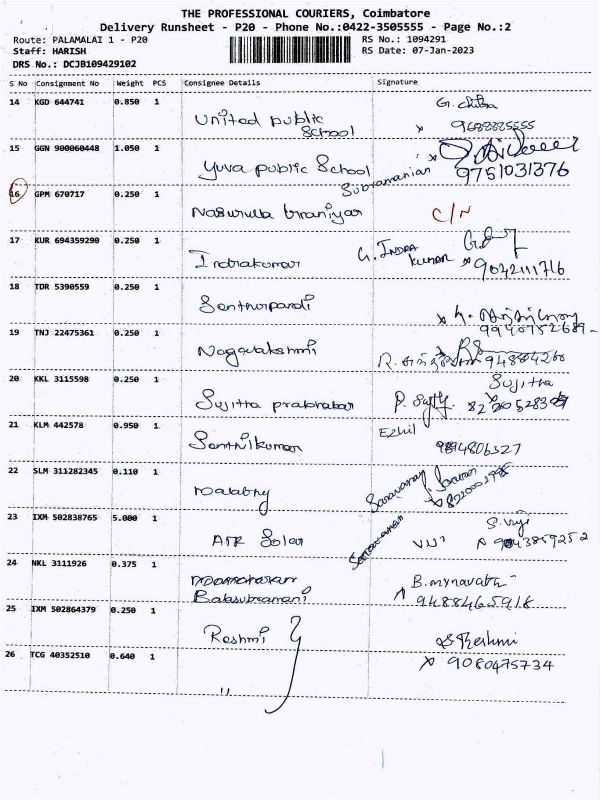 THE PROFESSIONAL COURIERS, Coimbatore
Delivery Runsheet - P20 - Phone No.:0422-3505555 - Page No.:2
Route: PALAMALAI 1 - P20
RS No.: 1094291
Staff: HARISH
RS Date: 07-Jan-2023
DRS No.: DCJB109429102
S No Consignment No Weight PCS Consignee Details Signature
14 KGD 644741 0.850 1
United public School
G. chitra
x 9688825555
15 GGN 900060448 1.050 1
Yuva public School
Subramanian
9751031376
16 GPM 670717 0.250 1
C/N
17 KUR 694359290 0.250 1
Indrakumar
G. INDRA KUMAR
x 9042111716
18 TDR 5390559 0.250 1
x
19 TNJ 22475361 0.250 1
Nagalakshmi
20 KKL 3115598 0.250 1
Sujitra prabhakar
Sujitra
21 KLM 442578 0.950 1
Senthilkumar
Ezhil
9894806327
22 SLM 311282345 0.110 1
Saravanan
23 IXM 502838765 5.000 1
AIR Solar
Saravanan
VIJI
S. Viji
24 NKL 3111926 0.375 1
Manoharan
Balasubramani
B. mynavathi
9488465918
25 IXM 502864379 0.250 1
Reshmi
S. Reshmi
26 TCG 40352510 0.640 1
x 9080475734
"